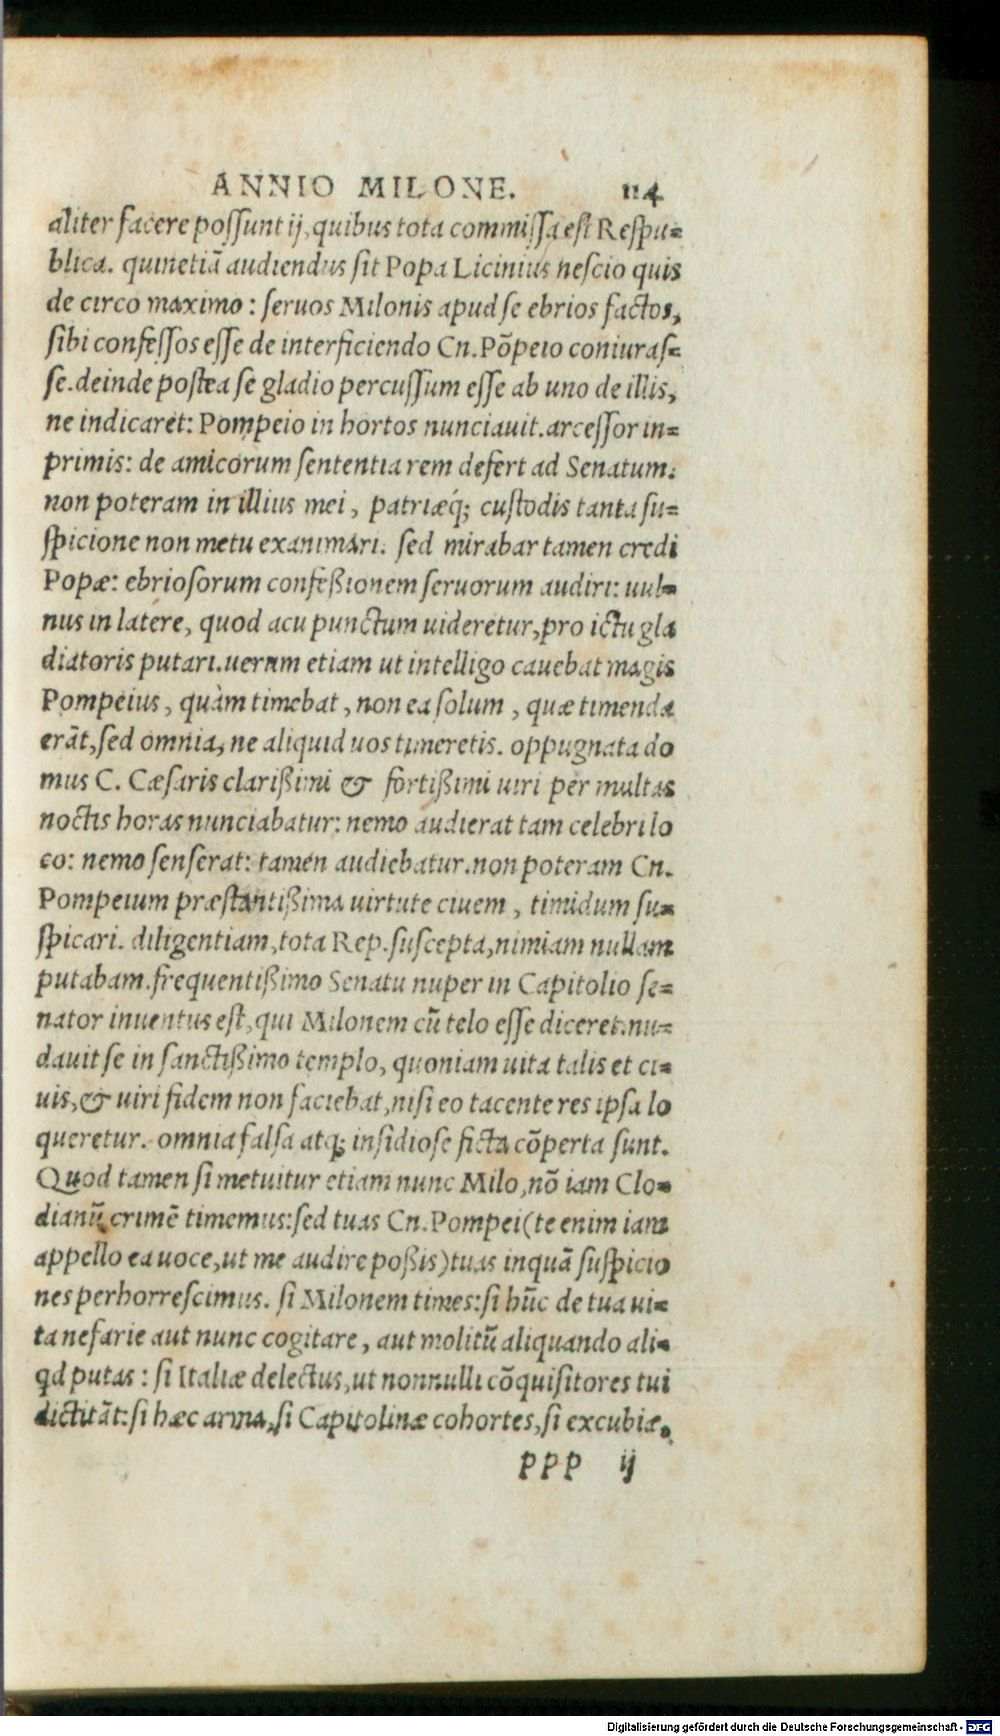 ANNIO MILONE. 114
aliter facere possunt ij, quibus tota commissa est Respu=
blica. quinetiā audiendus sit Popa Licinius nescio quis
de circo maximo: seruos Milonis apud se ebrios factos,
sibi confessos esse de interficiendo Cn. Pōpeio coniuras=
se. deinde postea se gladio percussum esse ab uno de illis,
ne indicaret: Pompeio in hortos nunciauit. arcessor in=
primis: de amicorum sententia rem defert ad Senatum:
non poteram in illius mei, patriæq́; custodis tanta su=
spicione non metu exanimari. sed mirabar tamen credi
Popæ: ebriosorum confeßionem seruorum audiri: uul=
nus in latere, quod acu punctum uideretur, pro ictu gla
diatoris putari. uerum etiam ut intelligo cauebat magis
Pompeius, quàm timebat, non ea solum, quæ timenda
erāt, sed omnia, ne aliquid uos timeretis. oppugnata do
mus C. Cæsaris clarißimi & fortißimi uiri per multas
noctis horas nunciabatur: nemo audierat tam celebri lo
co: nemo senserat: tamen audiebatur. non poteram Cn.
Pompeium præstantißima uirtute ciuem, timidum su=
spicari. diligentiam, tota Rep. suscepta, nimiam nullam
putabam. frequentißimo Senatu nuper in Capitolio se=
nator inuentus est, qui Milonem cū telo esse diceret. nu=
dauit se in sanctißimo templo, quoniam uita talis et ci=
uis, & uiri fidem non faciebat, nisi eo tacente res ipsa lo
queretur. omnia falsa atq; insidiose ficta cōperta sunt.
Quod tamen si metuitur etiam nunc Milo, nō iam Clo=
dianū crimē timemus: sed tuas Cn. Pompei (te enim iam
appello ea uoce, ut me audire poßis) tuas inquā suspicio
nes perhorrescimus. si Milonem times: si hūc de tua ui=
ta nefarie aut nunc cogitare, aut molitū aliquando ali=
qd putas: si Italiæ delectus, ut nonnulli cōquisitores tui
dictitāt: si hæc arma, si Capitolinæ cohortes, si excubiæ,
PPP ij
Digitalisierung gefördert durch die Deutsche Forschungsgemeinschaft - DFG